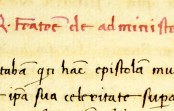 R. fratrē de administ
tabā qn hāc epistolam mu
ipa sua celeritate supa